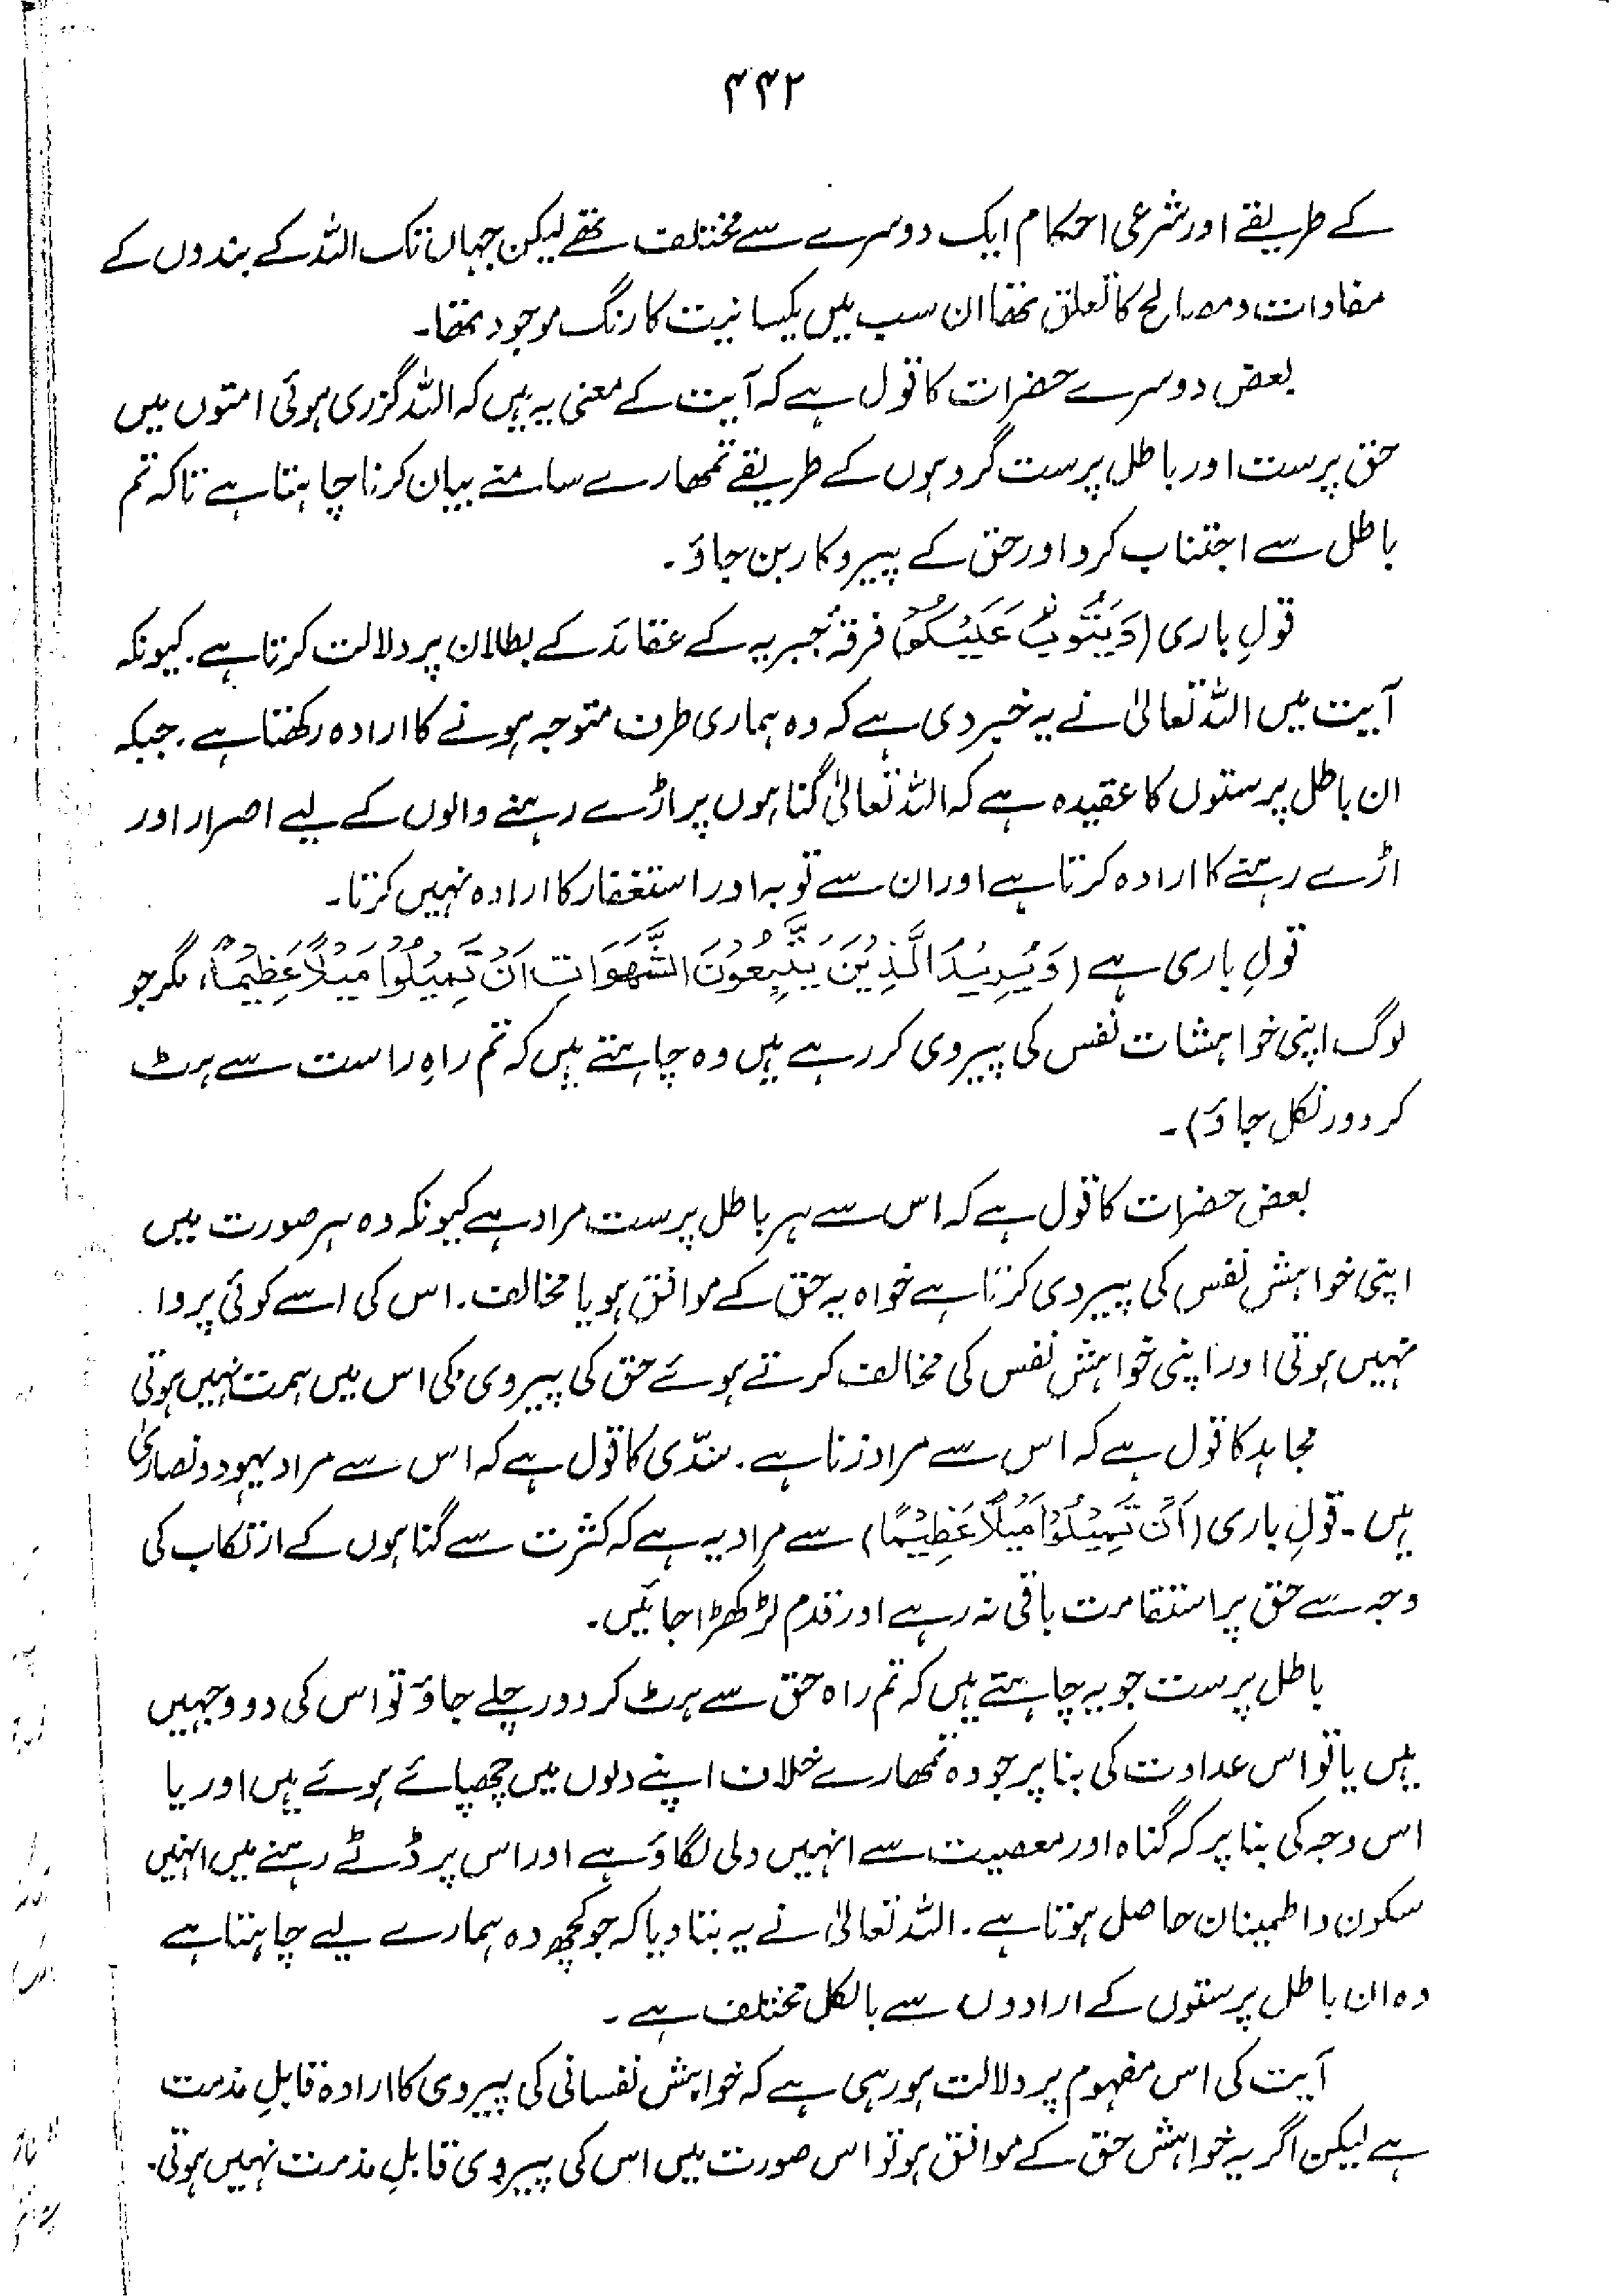 ۴۴۲
کے طریقے اور شرعی احکام ایک دوسرے سے مختلف تھے لیکن جہاں تک اللہ کے بندوں کے
مفادات و مصالح کا تعلق تھا ان سب میں یکسانیت کا رنگ موجود تھا۔
بعض دوسرے حضرات کا قول ہے کہ آیت کے معنی یہ ہیں کہ اللہ گزری ہوئی امتوں میں
حق پرست اور باطل پرست گروہوں کے طریقے تمھارے سامنے بیان کرنا چاہتا ہے تاکہ تم
باطل سے اجتناب کرو اور حق کے پیروکار بن جاؤ۔
قولِ باری (وَيَتُوبَ عَلَيْكُمْ) فرقۂ جبریہ کے عقائد کے بطلان پر دلالت کرتا ہے۔ کیونکہ
آیت میں اللہ تعالیٰ نے یہ خبر دی ہے کہ وہ ہماری طرف متوجہ ہونے کا ارادہ رکھتا ہے۔ جبکہ
ان باطل پرستوں کا عقیدہ ہے کہ اللہ تعالیٰ گناہوں پر اڑے رہنے والوں کے لیے اصرار اور
اڑے رہنے کا ارادہ کرتا ہے اور ان سے توبہ اور استغفار کا ارادہ نہیں کرتا۔
قولِ باری ہے (وَيُرِيدُ الَّذِينَ يَتَّبِعُونَ الشَّهَوَاتِ اَنْ تَمِيلُوا مَيْلًا عَظِيمًا، مگر جو
لوگ اپنی خواہشات نفس کی پیروی کر رہے ہیں وہ چاہتے ہیں کہ تم راہِ راست سے ہٹ
کر دور نکل جاؤ)۔
بعض حضرات کا قول ہے کہ اس سے ہر باطل پرست مراد ہے کیونکہ وہ ہر صورت میں
اپنی خواہش نفس کی پیروی کرتا ہے خواہ یہ حق کے موافق ہو یا مخالف۔ اس کی اسے کوئی پروا
نہیں ہوتی اور اپنی خواہش نفس کی مخالف کرتے ہوئے حق کی پیروی کی اس میں ہمت نہیں ہوتی
مجاہد کا قول ہے کہ اس سے مراد زنا ہے۔ سدّی کا قول ہے کہ اس سے مراد یہود و نصاریٰ
ہیں۔ قولِ باری (اَنْ تَمِيلُوا مَيْلًا عَظِيمًا) سے مراد یہ ہے کہ کثرت سے گناہوں کے ارتکاب کی
وجہ سے حق پر استقامت باقی نہ رہے اور قدم لڑکھڑا جائیں۔
باطل پرست جو یہ چاہتے ہیں کہ تم راہ حق سے ہٹ کر دور چلے جاؤ تو اس کی دو وجہیں
ہیں یا تو اس عداوت کی بنا پر جو وہ تمھارے خلاف اپنے دلوں میں چھپائے ہوئے ہیں اور یا
اس وجہ کی بنا پر کہ گناہ اور معصیت سے انہیں دلی لگاؤ ہے اور اس پر ڈٹے رہنے میں انہیں
سکون و اطمینان حاصل ہوتا ہے۔ اللہ تعالیٰ نے یہ بتا دیا کہ جو کچھ وہ ہمارے لیے چاہتا ہے
وہ ان باطل پرستوں کے ارادوں سے بالکل مختلف ہے۔
آیت کی اس مفہوم پر دلالت ہو رہی ہے کہ خواہش نفسانی کی پیروی کا ارادہ قابلِ مذمت
ہے لیکن اگر یہ خواہش حق کے موافق ہو تو اس صورت میں اس کی پیروی قابلِ مذمت نہیں ہوتی۔